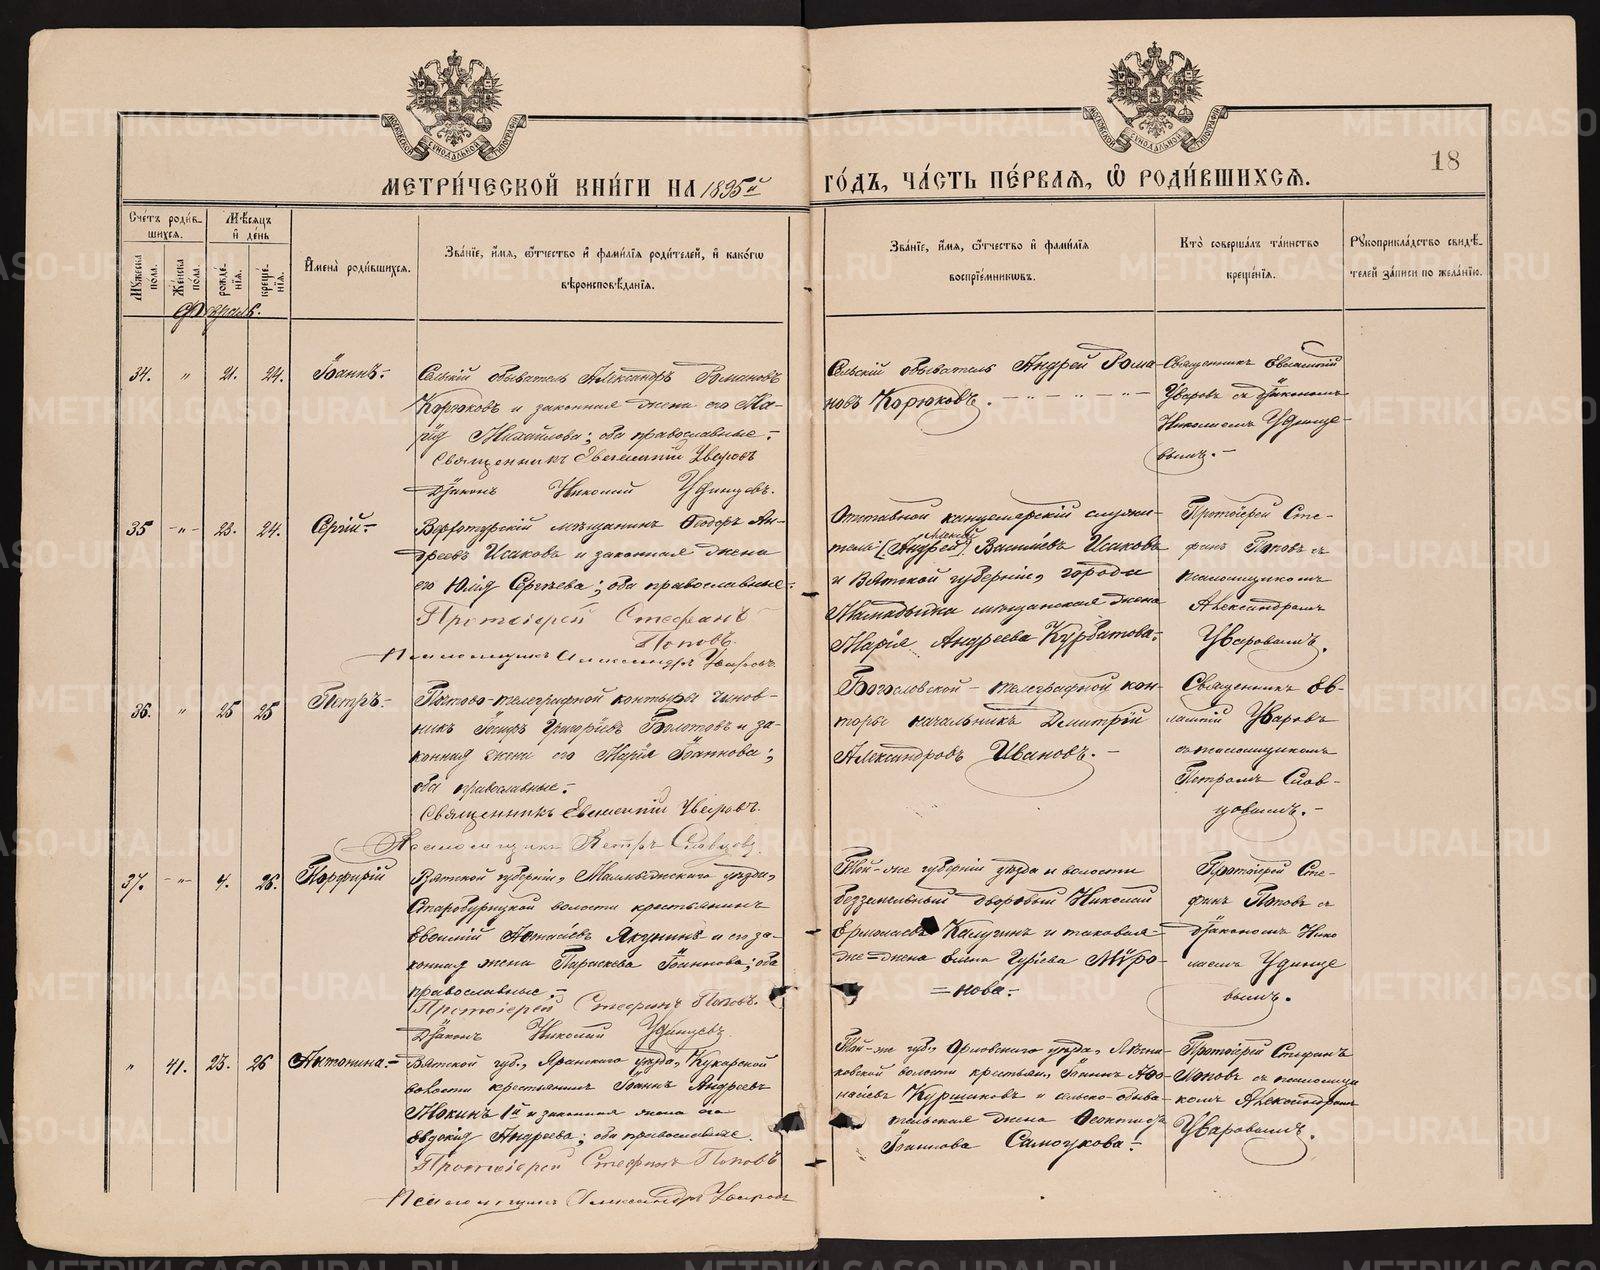 18
МЕТРИ́ЧЕСКОЙ КНИ́ГИ НА 1895й
ГО́ДЪ, ЧА́СТЬ ПЕ́РВАЯ, Ѽ РОДИ́ВШИХСЯ.
Сче́тъ роди́в-
шихся.
Мѣ́сяцъ
и҆ де́нь
Мꙋ́жеска пола.
Же́нска пола.
рожде́-
нїя.
креще́-
нїя.
И҆мена̀ роди́вшихся.
Зва́нїе, и҆́мя, ѻ҆́тчество и҆ фами́лїя роди́телей, и҆ како́гѡ
вѣроисповѣ́данїя.
Зва́нїе, и҆́мя, ѻ҆́тчество и҆ фами́лїя
воспрїе́мникѡвъ.
Кто̀ соверша́лъ та́инство
креще́нїя.
Рꙋкоприкла́дство свидѣ́-
телей за́писи по жела́нїю.
Февраль.
34. " 21. 24. Іоаннъ.-
Сельскій обыватель Александръ Романовъ
Корюковъ и законная жена его Ма-
рія Михайлова; оба православные.-
Священникъ Евгеній Уваровъ
Діаконъ Николай Удинцевъ.
Сельскій обыватель Андрей Рома-
новъ Корюковъ.
Священникъ
Уваровъ съ діакономъ
Николаемъ Удинце-
вымъ.-
35 -"- 23. 24. Сергій.-
Верхотурскій мѣщанинъ Ѳеодоръ Ан-
дреевъ Исаковъ и законная жена
его Юлія Сергѣева; оба православные.-
Протоіерей Стефанъ
Поповъ.
Псаломщикъ Александръ Уваровъ
Отставной канцелярскій служи-
тель (Андрей) Васильевъ Исаковъ
и Вятской губерніи, города
Малмыжа мѣщанская жена
Марія Андреева Курбатова.
Протоіерей Сте-
фанъ Поповъ съ
псаломщикомъ
Александромъ
Уваровымъ.
36. " 25 25 Петръ.-
Почтово-телеграфной конторы чинов-
никъ Іосифъ Григорьевъ Болотовъ и за-
конная жена его Марія Іоаннова;
оба православные.-
Священникъ Уваровъ.
Псаломщикъ Петръ Словцовъ.
Богословской-телеграфной кон-
торы начальникъ Димитрій
Александровъ Ивановъ.-
Священникъ Ев-
Уваровъ
съ псаломщикомъ
Петромъ Слов-
цовымъ.-
37. -"- 4. 26. Порфирій
Вятской губерніи, Малмыжскаго уѣзда,
Старобурецкой волости крестьянинъ
Аѳанасьевъ Якунинъ и его за-
конная жена Параскева Іоаннова; оба
православные.-
Протоіерей Стефанъ Поповъ.
Діаконъ Николай Удинцевъ.
Той-же губерніи уѣзда и волости
безземельный дворовый Николай
Ермолаевъ Калугинъ и таковая-
же=жена Елена Гурьева Миро-
=нова.-
Протоіерей Сте-
фанъ Поповъ съ
діакономъ Нико
лаемъ Удинце
вымъ.
" 41. 23. 26 Антонина.-
Вятской губ., Яранскаго уѣзда, Кукарской
волости крестьянинъ Іоаннъ Андреевъ
1й и законная жена его
Евдокія Андреева; оба православные.
Протоіерей Стефанъ Поповъ
Псаломщикъ Александръ Уваровъ
Той-же губ., Орловскаго уѣзда,
ковской волости крестьян. Іоаннъ Аѳа-
насьевъ Куршаковъ и сельско-обыва-
тельская жена
Іоаннова Самоукова.-
Протоіерей Стефанъ
Поповъ съ псаломщи
комъ Александромъ
Уваровымъ.